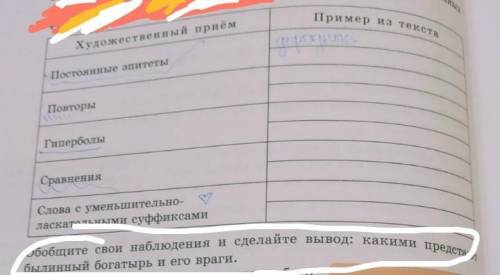 Художественный приём
Пример из текста
Постоянные эпитеты
Повторы
Гиперболы
Сравнения
Слова с уменьшительно-
ласкательными суффиксами
Обобщите свои наблюдения и сделайте вывод: какими предста
былинный богатырь и его враги.